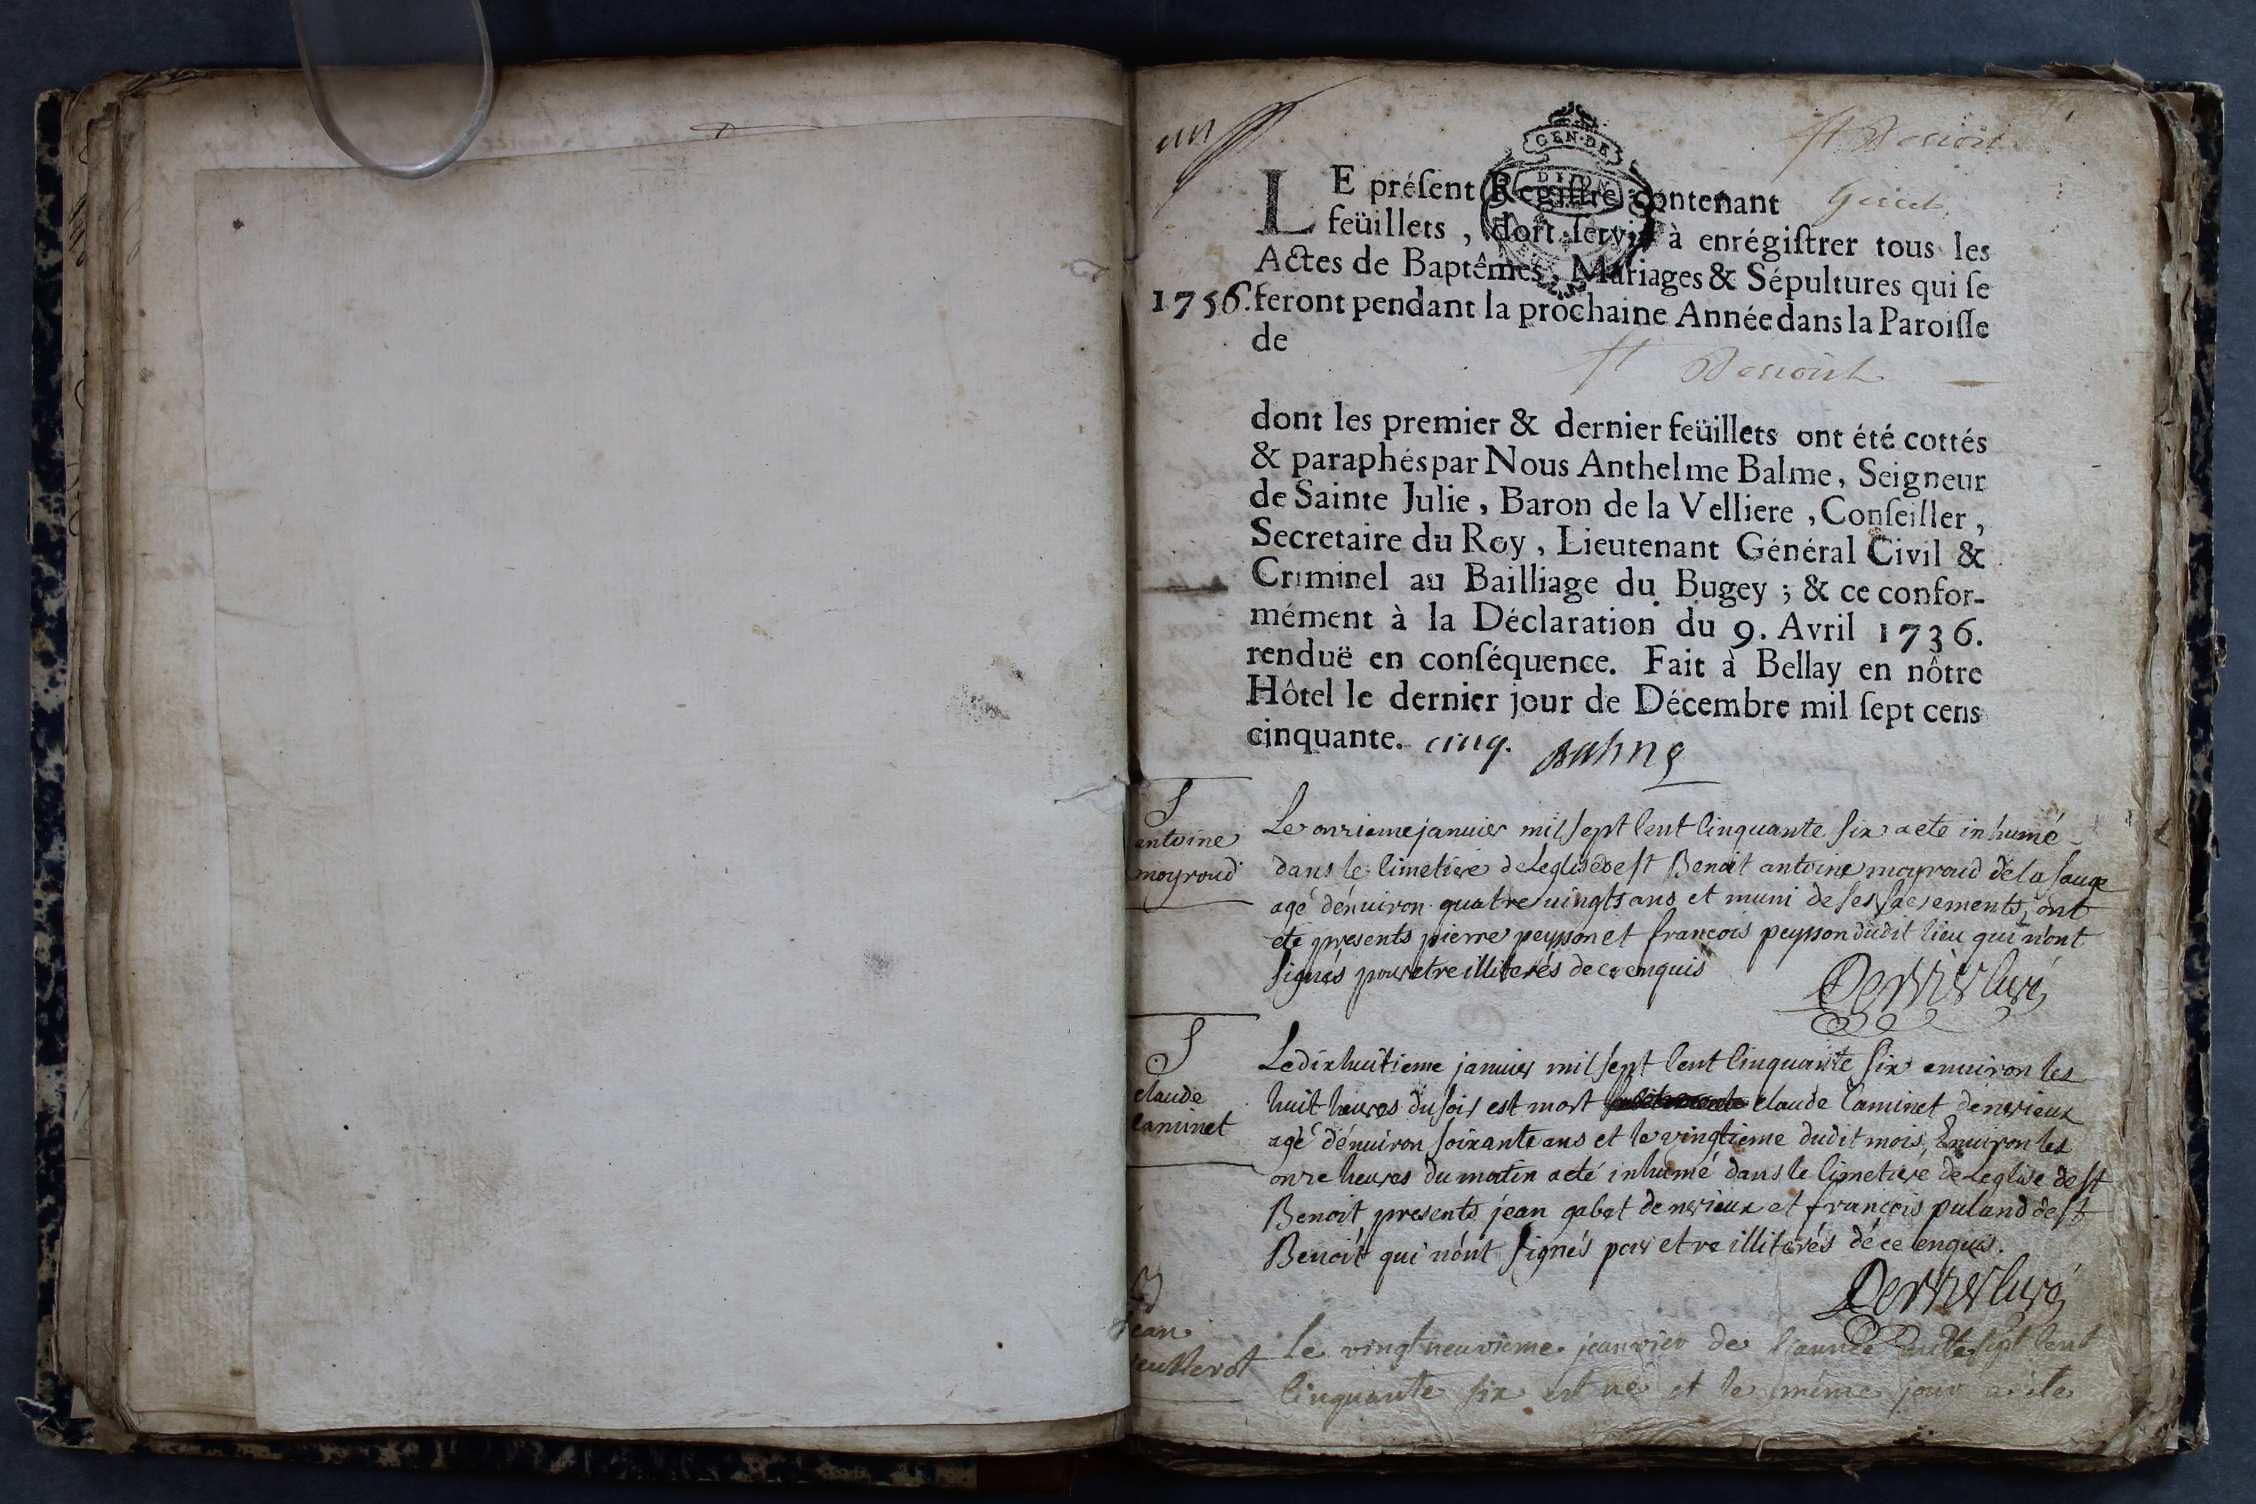 un
St Benoit
GEN·DE
DIJON
LE préſent Regiſtre contenant
feüillets, doit ſervir à enrégiſtrer tous les
Actes de Baptêmes, Mariages & Sépultures qui ſe
1756. feront pendant la prochaine Année dans la Paroiſſe
de
St Benoist
dont les premier & dernier feüillets ont été cottés
& paraphés par Nous Anthelme Balme, Seigneur
de Sainte Julie, Baron de la Velliere, Conſeiller,
Secretaire du Roy, Lieutenant Général Civil &
Criminel au Bailliage du Bugey; & ce confor-
mément à la Déclaration du 9. Avril 1736.
renduë en conſéquence. Fait à Bellay en nôtre
Hôtel le dernier jour de Décembre mil ſept cens
cinquante. cinq. Balme
S
antoine
moyroud
Le onzieme janvier mil sept cent cinquante six a eté inhumé
dans le cimetiere de leglise de st Benoit antoine moyroud de la sauge
agé dénviron quatre vingts ans et muni de ses sacrements, ont
eté presents pierre peysson et francois peysson dudit lieu qui n'ont
signés pour etre illiterés de ce enquis
curé
S
claude
caminet
Le dixhuitieme janvier mil sept cent cinquante six environ les
huit heures du soir est mort claude caminet de nerieux
agé dénviron soixante ans et le vingtieme dudit mois environ les
onze heures du matin a eté inhumé dans le cimetiere de leglise de st
Benoit presents jean gabet de nerieux et françois puland de st
Benoit qui n'ont signés par etre illiterés de ce enquis.
curé
B
jean
Le vingt neuvieme jeanvier de l'année mille sept cent
cinquante six est né et le même jour a été